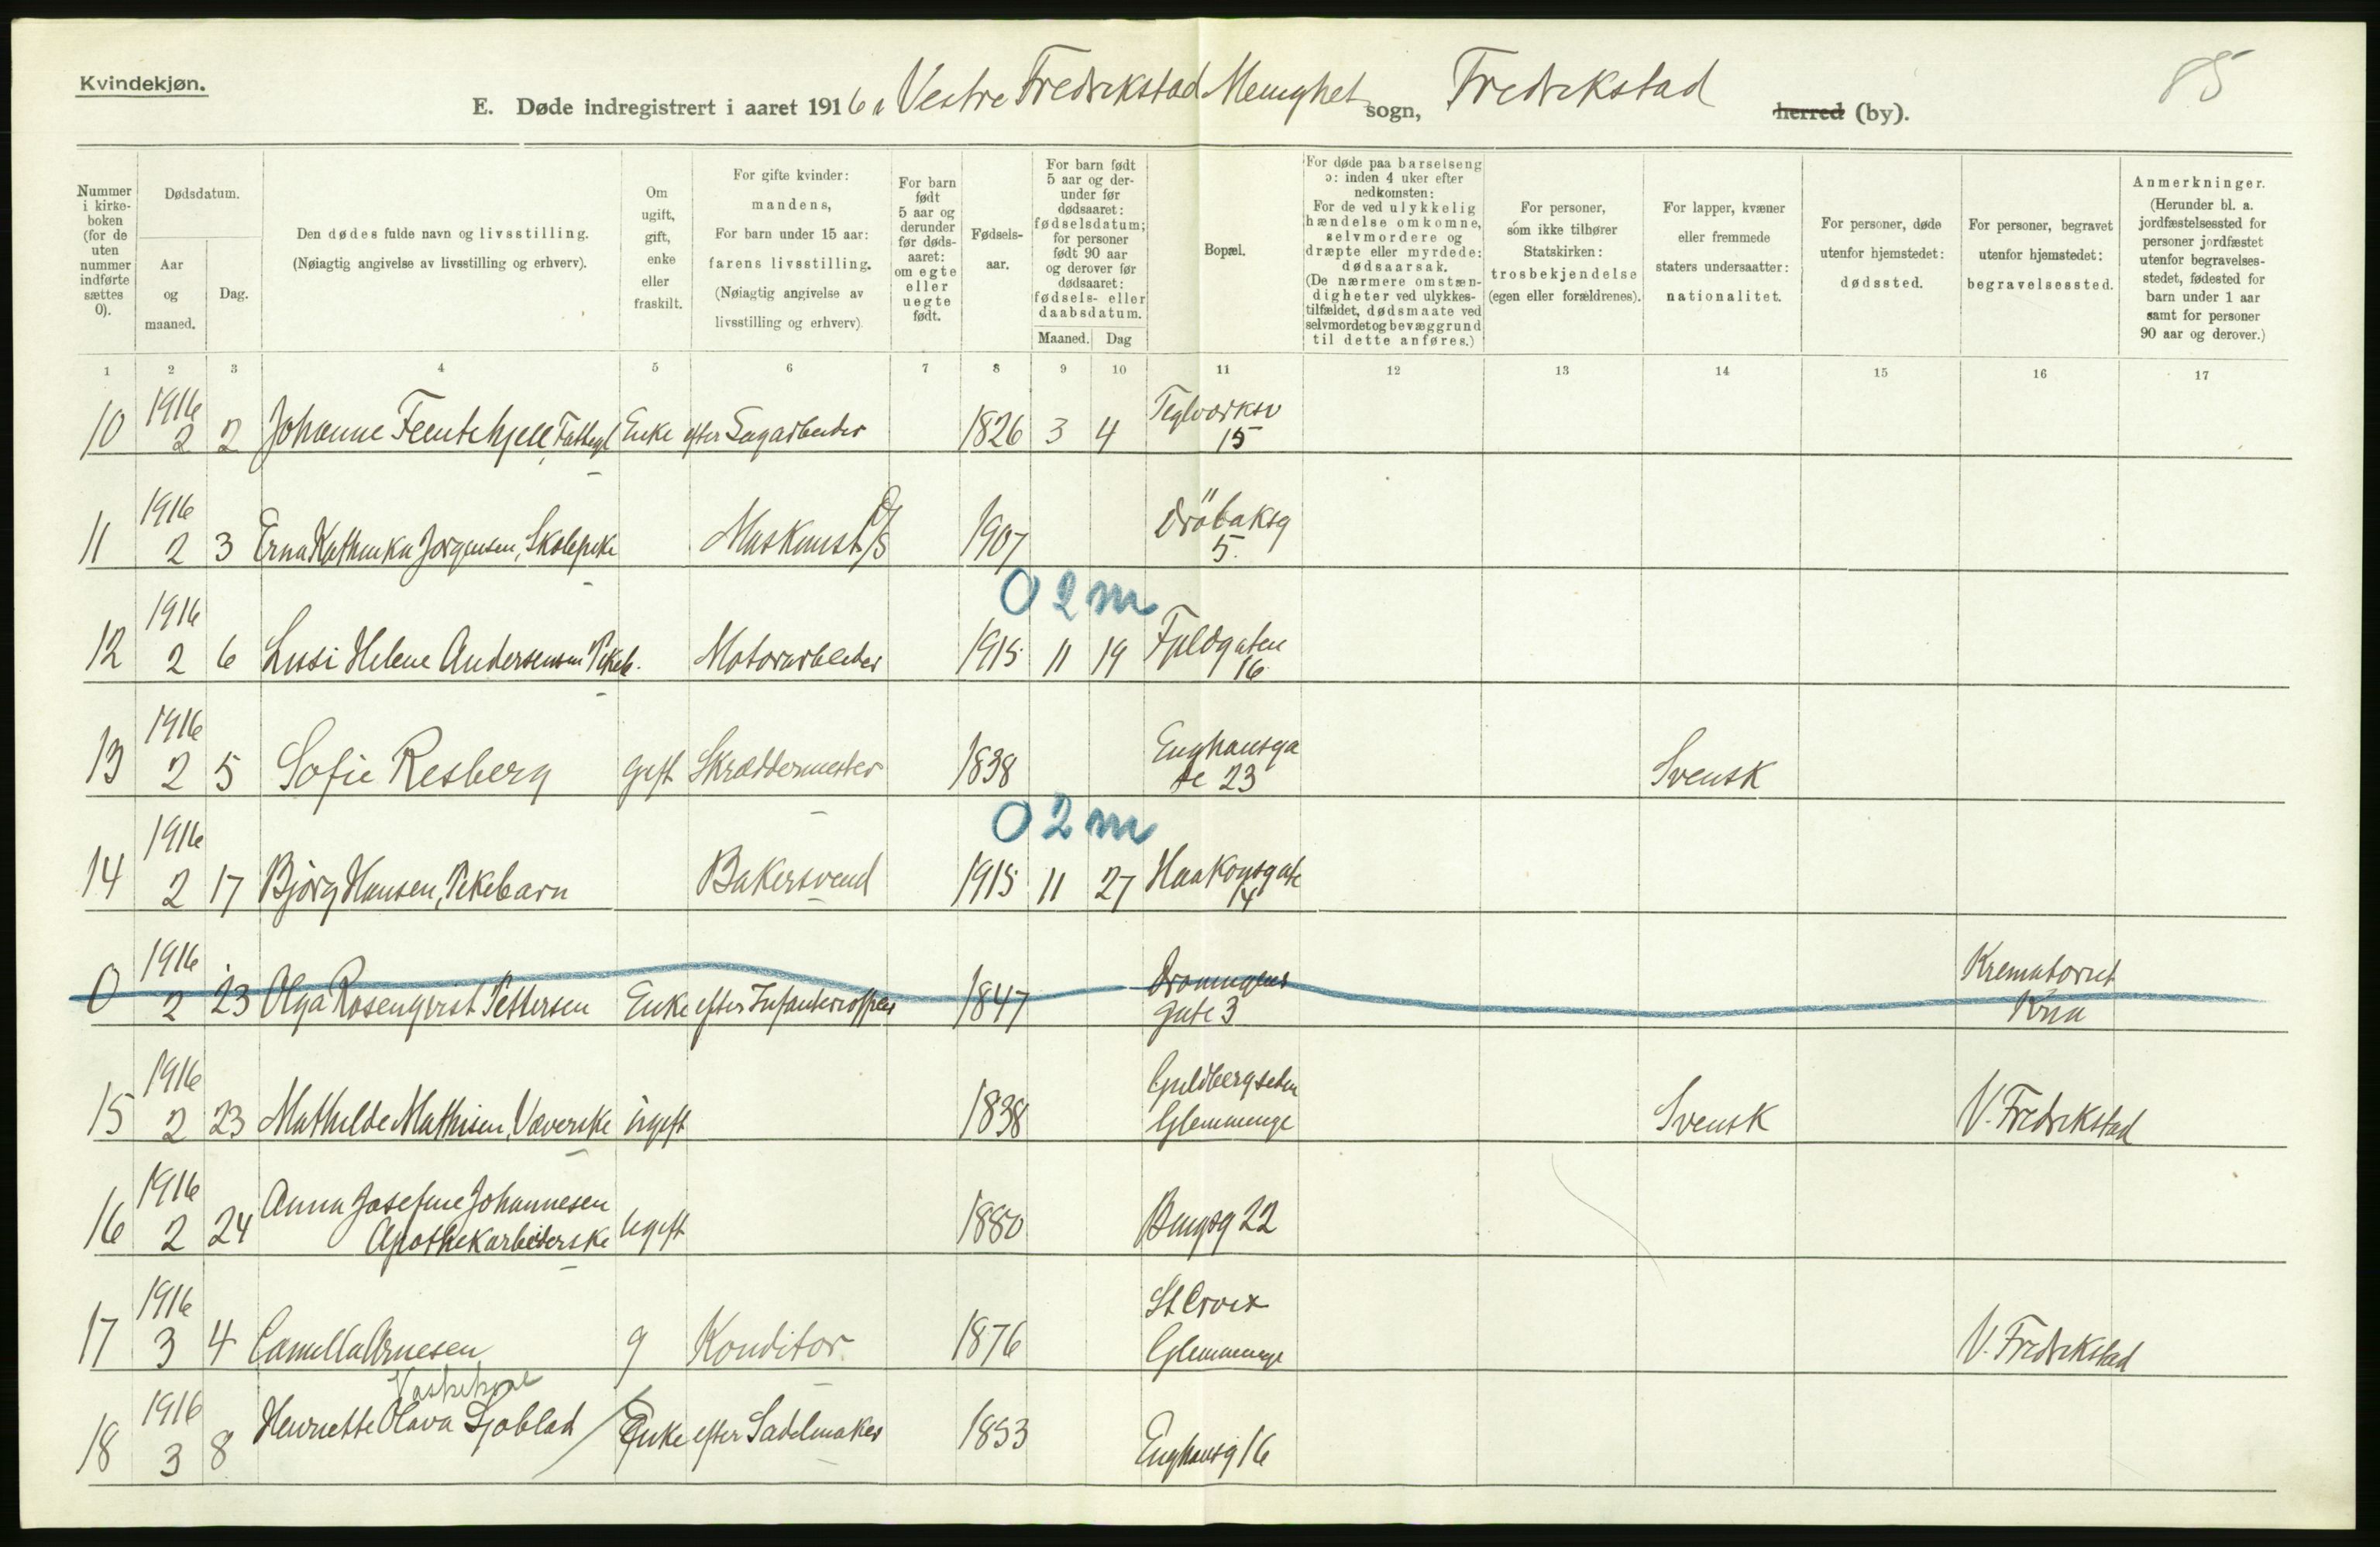 Kvindekjøn.
85
E. Døde indregistrert i aaret 1916 i Vestre Fredrikstad Menighet sogn, Fredrikstad herred (by).
Nummer i kirkeboken (for de uten nummer indførte sættes 0).
Dødsdatum.
Aar og maaned.
Dag.
Den dødes fulde navn og livsstilling.
(Nøiagtig angivelse av livsstilling og erhverv).
Om ugift, gift, enke eller fraskilt.
For gifte kvinder: mandens,
For barn under 15 aar: farens livsstilling.
(Nøiagtig angivelse av livsstilling og erhverv)
For barn født 5 aar og derunder før dødsaaret: om egte eller uegte født.
Fødselsaar.
For barn født 5 aar og derunder før dødsaaret: fødselsdatum; for personer født 90 aar og derover før dødsaaret: fødsels- eller daabsdatum.
Maaned. Dag
Bopæl.
For døde paa barselseng ɔ: inden 4 uker efter nedkomsten:
For de ved ulykkelig hændelse omkomne, selvmordere og dræpte eller myrdede: dødsaarsak.
(De nærmere omstændigheter ved ulykkestilfældet, dødsmaate ved selvmordet og bevæggrund til dette anføres.)
For personer, som ikke tilhører Statskirken: trosbekjendelse (egen eller forældrenes).
For lapper, kvæner eller fremmede staters undersaatter: nationalitet.
For personer, døde utenfor hjemstedet: dødssted.
For personer, begravet utenfor hjemstedet: begravelsessted.
Anmerkninger.
(Herunder bl. a. jordfæstelsessted for personer jordfæstet utenfor begravelsesstedet, fødested for barn under 1 aar samt for personer 90 aar og derover.)
1 2 3 4 5 6 7 8 9 10 11 12 13 14 15 16 17
10 1916 2 2 Johanne Enke efter Sagarbeider 1826 3 4 Teglverksv 15
11 1916 2 3 Erna Kathinka Jørgensen, Skolepike 1907 Drøbaksg 5.
0 2 m
12 1916 2 6 Lusi Helene Andersen Pikeb. Motorarbeider 1915 11 19 Fjeldgaten 16
13 1916 2 5 Sofie Resberg gift Skræddermester 1838 Enghausga te 23 Svensk
0 2 m
14 1916 2 17 Bjørg Hansen, Pikebarn Bakersvend 1915 11 27 Haakonsgate 14
0 1916 2 23 Olga Rosenqvist Pettersen Enke efter 1847 Dronningens gate 3 Krematoriet Kria
15 1916 2 23 Mathilde Mathisen, Væverske ugift 1838 Glemminge Svensk V. Fredrikstad
16 1916 2 24 Anna Josefine Johannesen Apothekarbeiderske Ugift 1880 22
17 1916 3 4 Camilla Arnesen g Konditor 1876 St Croix Glemminge V. Fredrikstad
Vaskekone
18 1916 3 8 Henriette Olava Sjøblad Enke efter Sadelmaker 1853 Enghausg 16